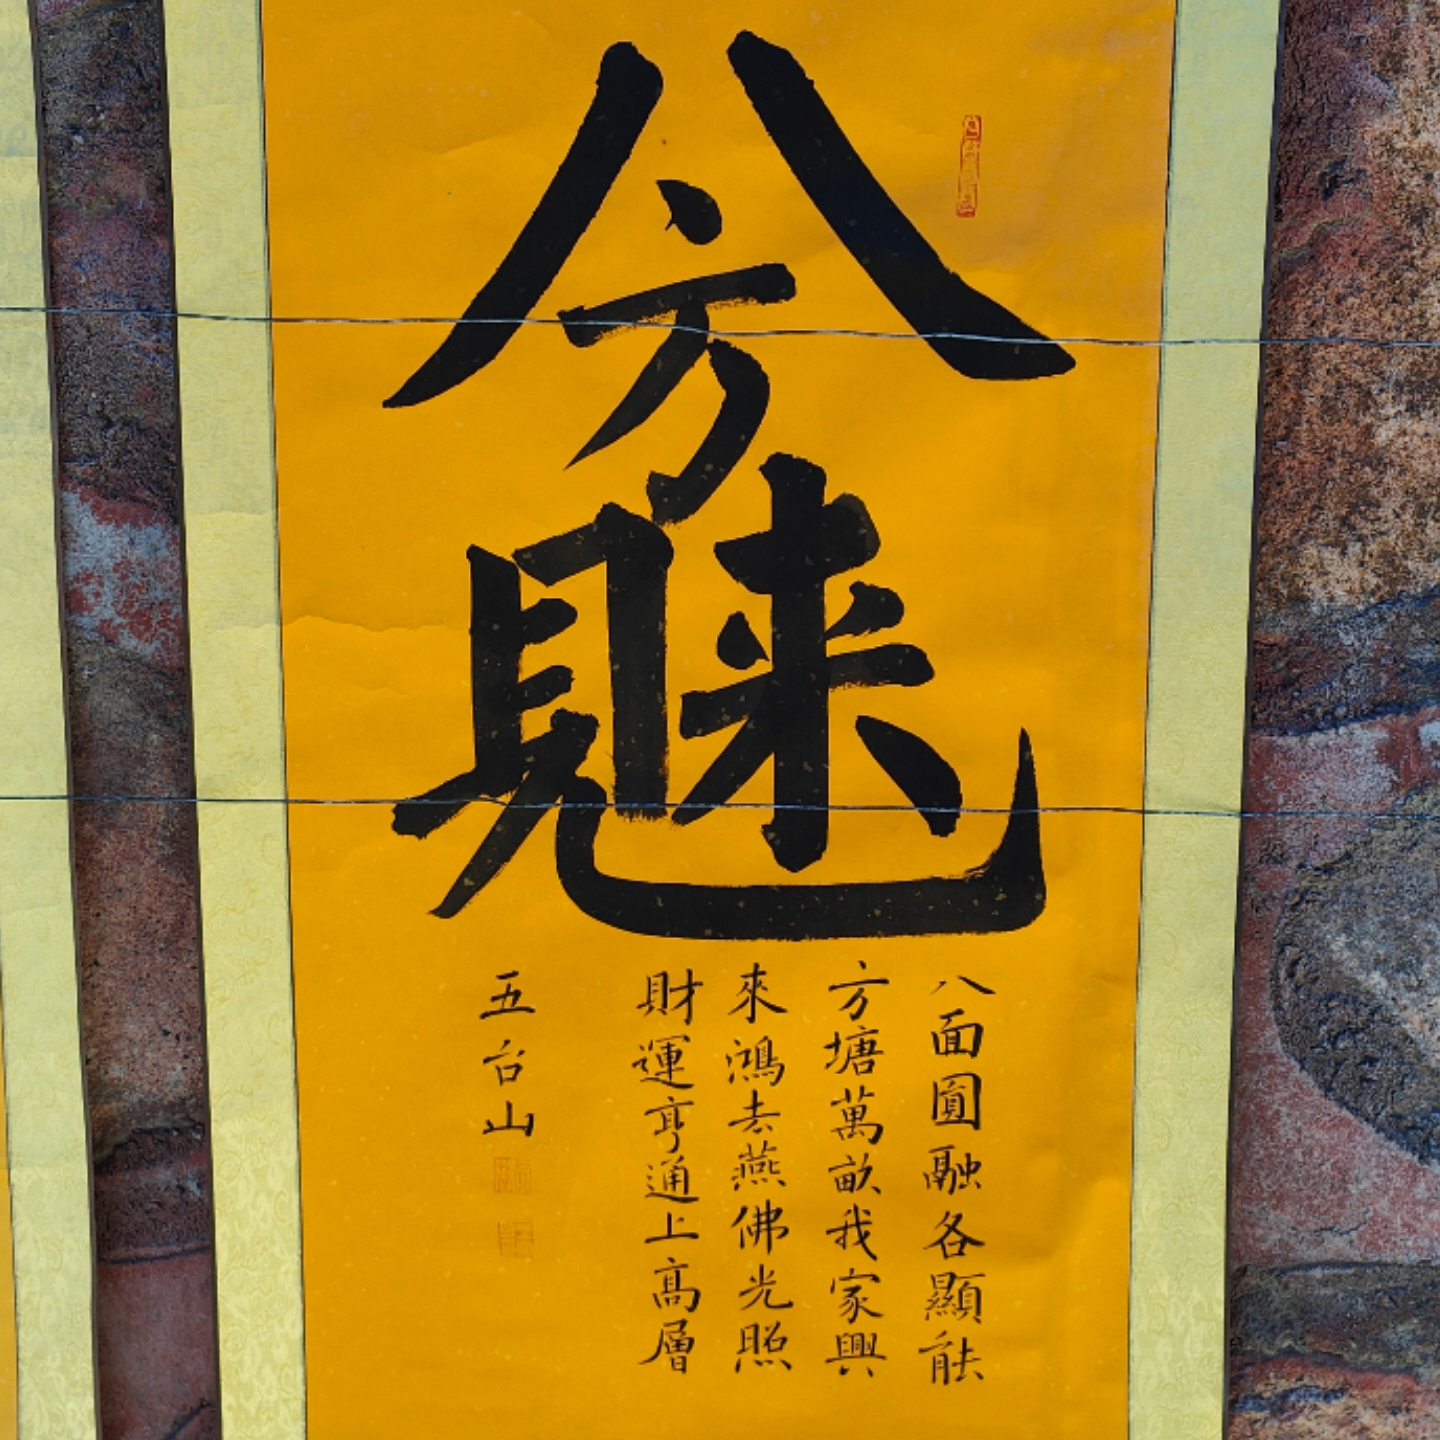 八面圓融各顯能
方塘萬畝我家興
來鴻去燕佛光照
財運亨通上高層
五台山